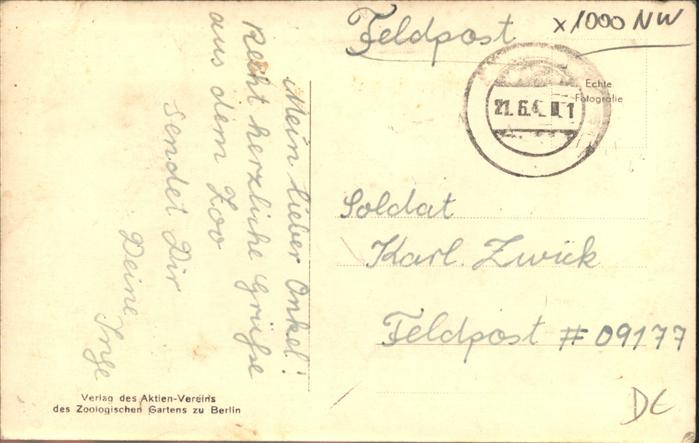 Feldpost
x1000 NW
Echte
Fotografie
21.6.4
Mein lieber Onkel!
Recht herzliche Grüße
aus dem Zoo
sendet Dir
Deine Inge
Soldat
Karl Zwick
Feldpost # 09177
DE
Verlag des Aktien-Vereins
des Zoologischen Gartens zu Berlin